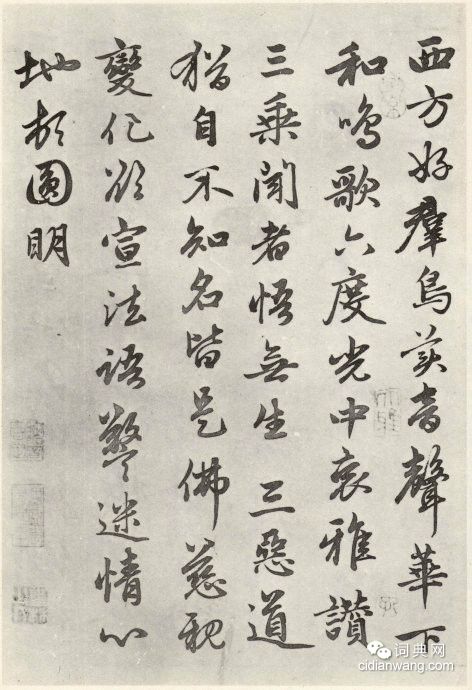 西方好羣鳥美音聲華下
和鳴歌六度光中哀雅讚
三乘聞者悟無生 三惡道
猶自不知名皆是佛慈親
變化欲宣法語警迷情心
地頓圓明
词典网
cidianwang.com